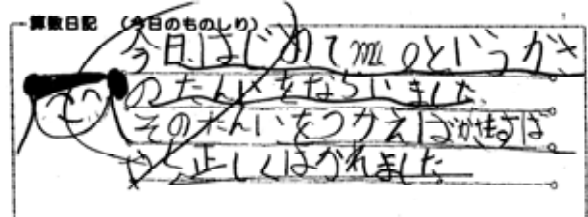 算数日記 (今日のものしり)
今日はじめてmlというかさ
のたんいをならいました。
そのたんいをつかえば
正しくはかれました